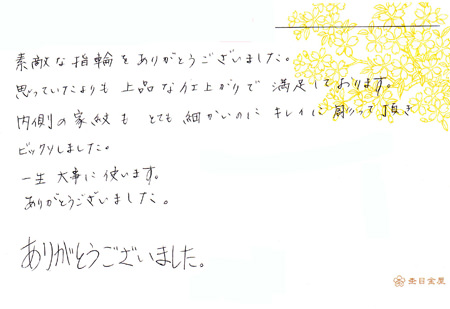 素敵な指輪をありがとうございました。
思っていたよりも上品な仕上がりで満足しております。
内側の家紋もとても細かいのにキレイに彫って頂き
ビックリしました。
一生大事に使います。
ありがとうございました。
ありがとうございました。
杢目金屋